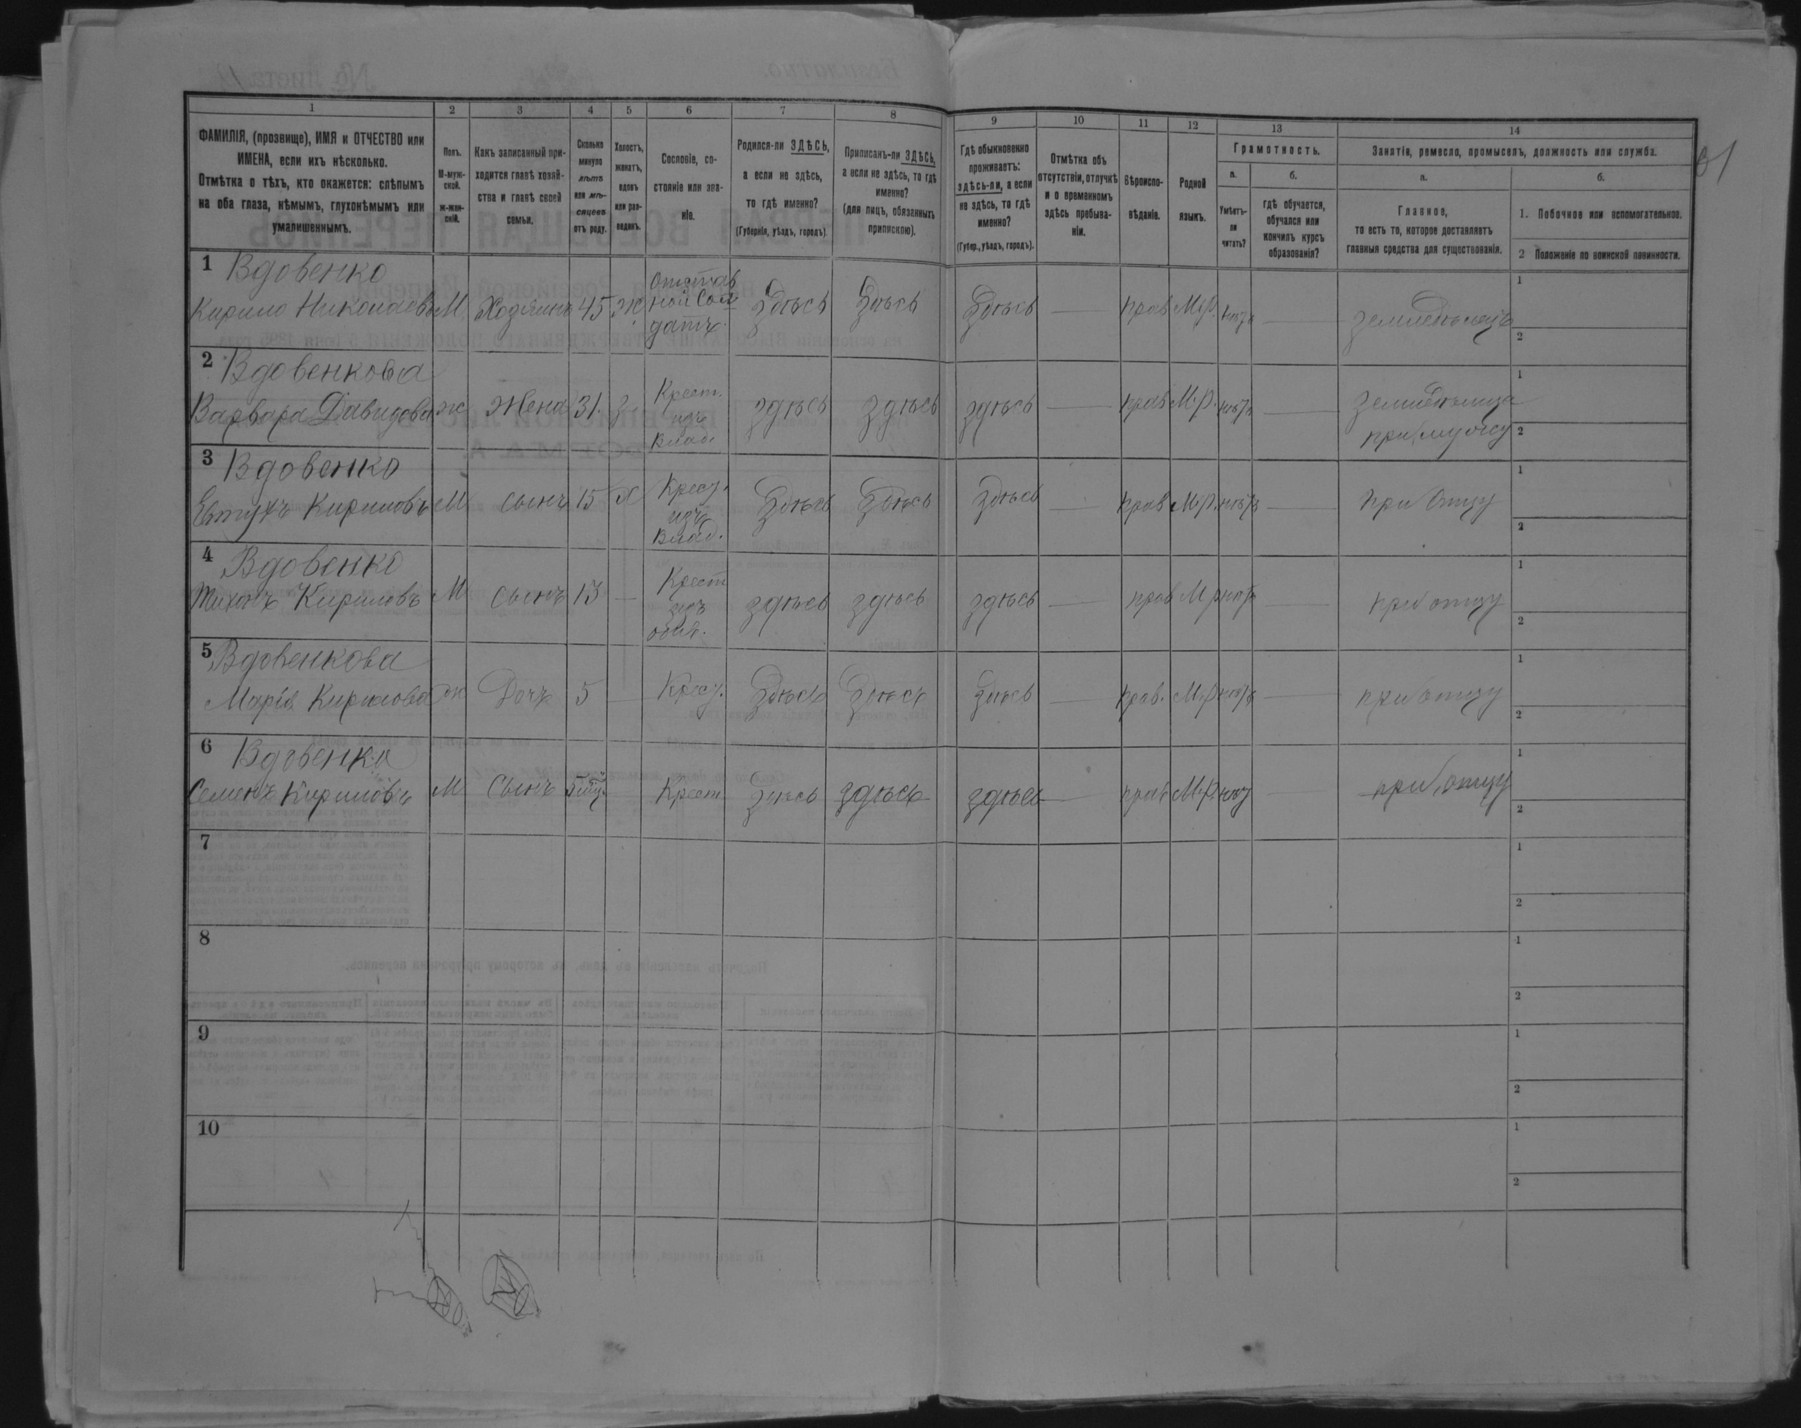 1 2 3 4 5 6 7 8 9 10 11 12 13 14
ФАМИЛІЯ, (прозвище), ИМЯ и ОТЧЕСТВО или
ИМЕНА, если ихъ нѣсколько.
Отмѣтка о тѣхъ, кто окажется: слѣпымъ
на оба глаза, нѣмымъ, глухонѣмымъ или
умалишеннымъ.
Полъ.
М-муж-
ской.
ж-жен-
скій.
Какъ записанный при-
ходится главѣ хозяй-
ства и главѣ своей
семьи.
Сколько
минуло
лѣтъ
или мѣ-
сяцевъ
отъ роду.
Холостъ,
женатъ,
вдовъ
или раз-
веденъ.
Сословіе, со-
стояніе или зва-
ніе.
Родился-ли ЗДѢСЬ,
а если не здѣсь,
то гдѣ именно?
(Губернія, уѣздъ, городъ).
Приписанъ-ли ЗДѢСЬ,
а если не здѣсь, то гдѣ
именно?
(для лицъ, обязанныхъ
припискою).
Гдѣ обыкновенно
проживаетъ:
здѣсь-ли, а если
не здѣсь, то гдѣ
именно?
(Губер., уѣздъ, городъ).
Отмѣтка объ
отсутствіи, отлучкѣ
и о временномъ
здѣсь пребыва-
ніи.
Вѣроиспо-
вѣданіе.
Родной
языкъ.
Грамотность.
а.
Умѣетъ-
ли
читать?
б.
гдѣ обучается,
обучался или
кончилъ курсъ
образованія?
Занятіе, ремесло, промыселъ, должность или служба.
а.
Главное,
то есть то, которое доставляетъ
главныя средства для существованія.
б.
1. Побочное или вспомогательное.
2 Положеніе по воинской повинности.
1 Вдовенко
Кирило Николаевъ М Хозяинъ 45 Ж Отставной Солдатъ Здѣсь Здѣсь Здѣсь — прав М.р. нѣтъ — земледѣлецъ 1 2
2 Вдовенкова
Варвара Давидова ж жена 31 з Крест. изъ влад здѣсь здѣсь здѣсь — прав М.р. нѣтъ — земледѣлица при мужу 1 2
3 Вдовенко
Евтухъ Кириловъ М сынъ 15 Х Крест. изъ влад. Здѣсь Здѣсь здѣсь — прав М.р. нѣтъ — при отцу 1 2
4 Вдовенко
Тихонъ Кириловъ М сынъ 13 — Крест изъ здѣсь здѣсь здѣсь — прав М.р нѣтъ — при отцу 1 2
5 Вдовенкова
Марія Кирилова ж Дочь 5 — Крест. Здѣсь Здѣсь здѣсь — прав. М.р нѣтъ — при отцу 1 2
6 Вдовенко
Семенъ Кириловъ М Сынъ Крест Здѣсь здѣсь здѣсь — прав М.р нѣтъ — при отцу 1 2
7 1 2
8 1 2
9 1 2
10 1 2